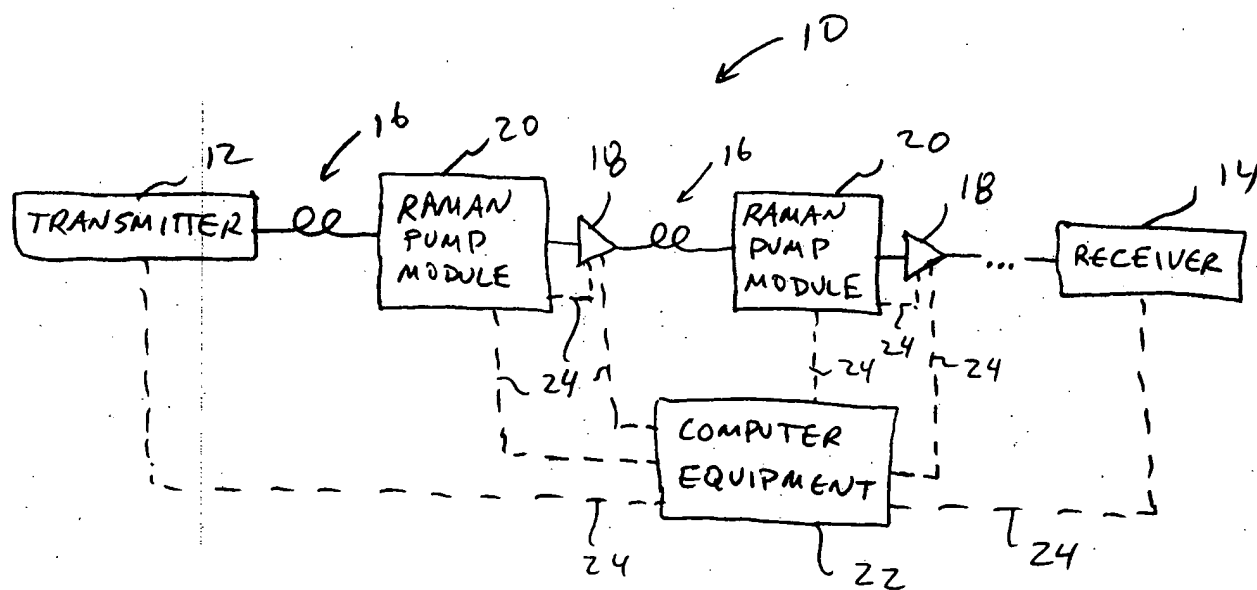 10
16
20
18
16
20
18
14
12
TRANSMITTER
RAMAN
PUMP
MODULE
RAMAN
PUMP
MODULE
...
RECEIVER
24
24
24
24
24
COMPUTER
EQUIPMENT
24
24
22